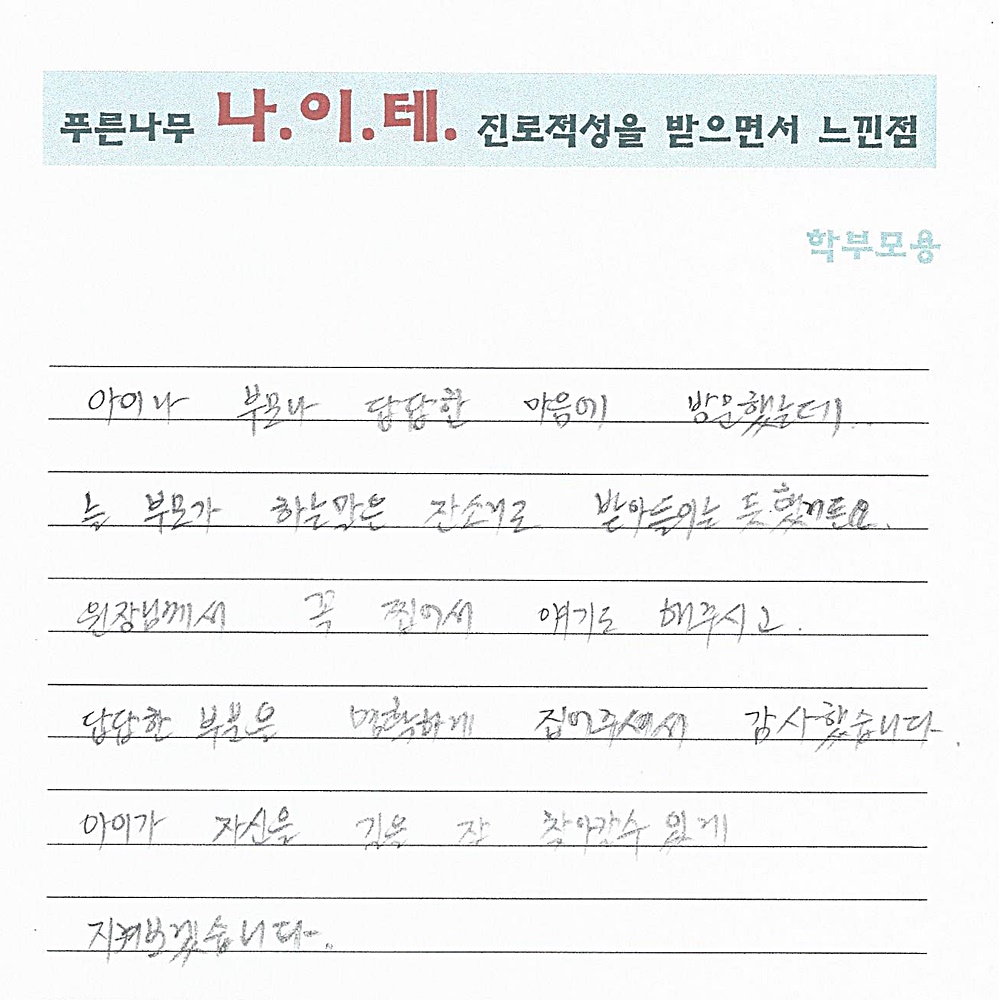 푸른나무 나.이.테. 진로적성을 받으면서 느낀점
학부모용
아이나 부모나 답답한 마음에 방문했는데..
늘 부모가 하는말은 잔소리로 받아들이는 듯 했거든요.
원장님께서 꼭 찝어서 얘기도 해주시고.
답답한 부분을 명확하게 집어주셔서 감사했습니다.
아이가 자신을 길을 잘 찾아갈수 있게
지켜보겠습니다..